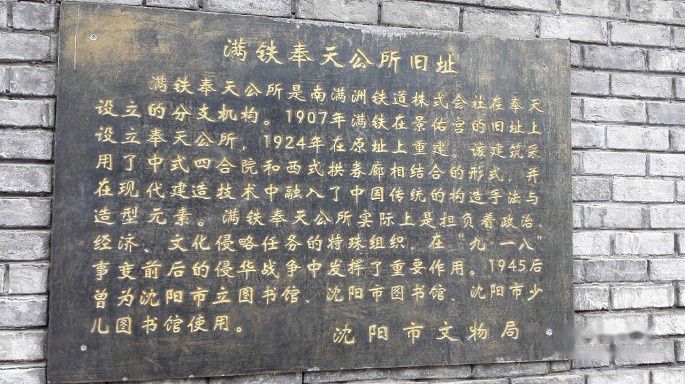 满铁奉天公所旧址
满铁奉天公所是南满洲铁道株式会社在奉天
设立的分支机构。1907年满铁在景佑宫的旧址上
设立奉天公所，1924年在原址上重建。该建筑采
用了中式四合院和西式拱券廊相结合的形式，并
在现代建造技术中融入了中国传统的构造手法与
造型元素。满铁奉天公所实际上是担负着政治、
经济、文化侵略任务的特殊组织，在“九·一八”
事变前后的侵华战争中发挥了重要作用。1945后
曾为沈阳市立图书馆、沈阳市图书馆、沈阳市少
儿图书馆使用。
沈阳市文物局